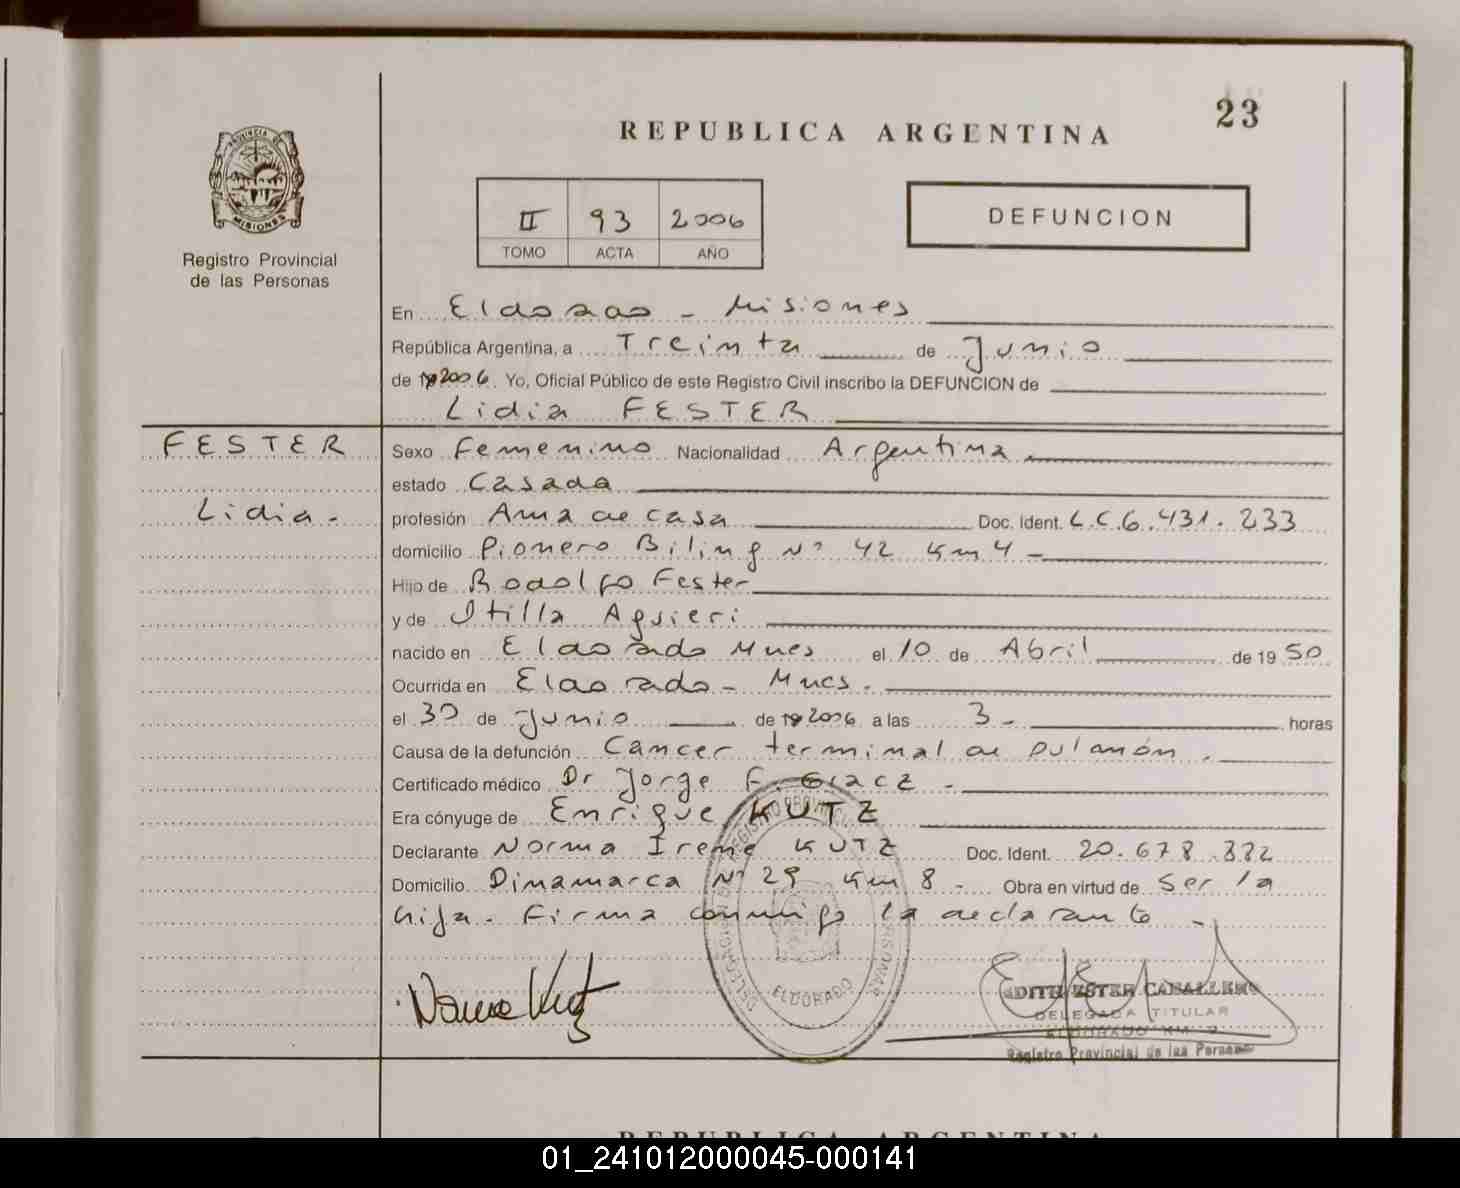 23
REPUBLICA ARGENTINA
PROVINCIA DE MISIONES
Registro Provincial
de las Personas
II 93 2006
TOMO ACTA AÑO
DEFUNCION
En Eldorado - Misiones
República Argentina, a Treinta de Junio
de 2006. Yo, Oficial Público de este Registro Civil inscribo la DEFUNCION de
Lidia FESTER
FESTER
Lidia.-
Sexo Femenino Nacionalidad Argentina
estado Casada
profesión Ama de casa Doc. Ident. L.C.6.431.233
domicilio Pionero Biling Nº 42 Km 4 -
Hijo de Rodolfo Fester
y de Otilla Aguieri
nacido en Eldorado Mnes el 10 de Abril de 1950
Ocurrida en Eldorado - Mnes.
el 30 de Junio de 2006 a las 3.- horas
Causa de la defunción Cancer terminal de pulmón.
Certificado médico Dr Jorge F. -
Era cónyuge de Enrique KUTZ
Declarante Norma Irene KUTZ Doc. Ident. 20.678.332
Domicilio Dinamarca Nº 29 Km 8 - Obra en virtud de ser la
hija. Firma conmigo la declarante -
ELDORADO
EDITH ESTER CABALLERO
DELEGADA TITULAR
ELDORADO KM. 9
Registro Provincial de las Personas
REPUBLICA ARGENTINA
01_241012000045-000141